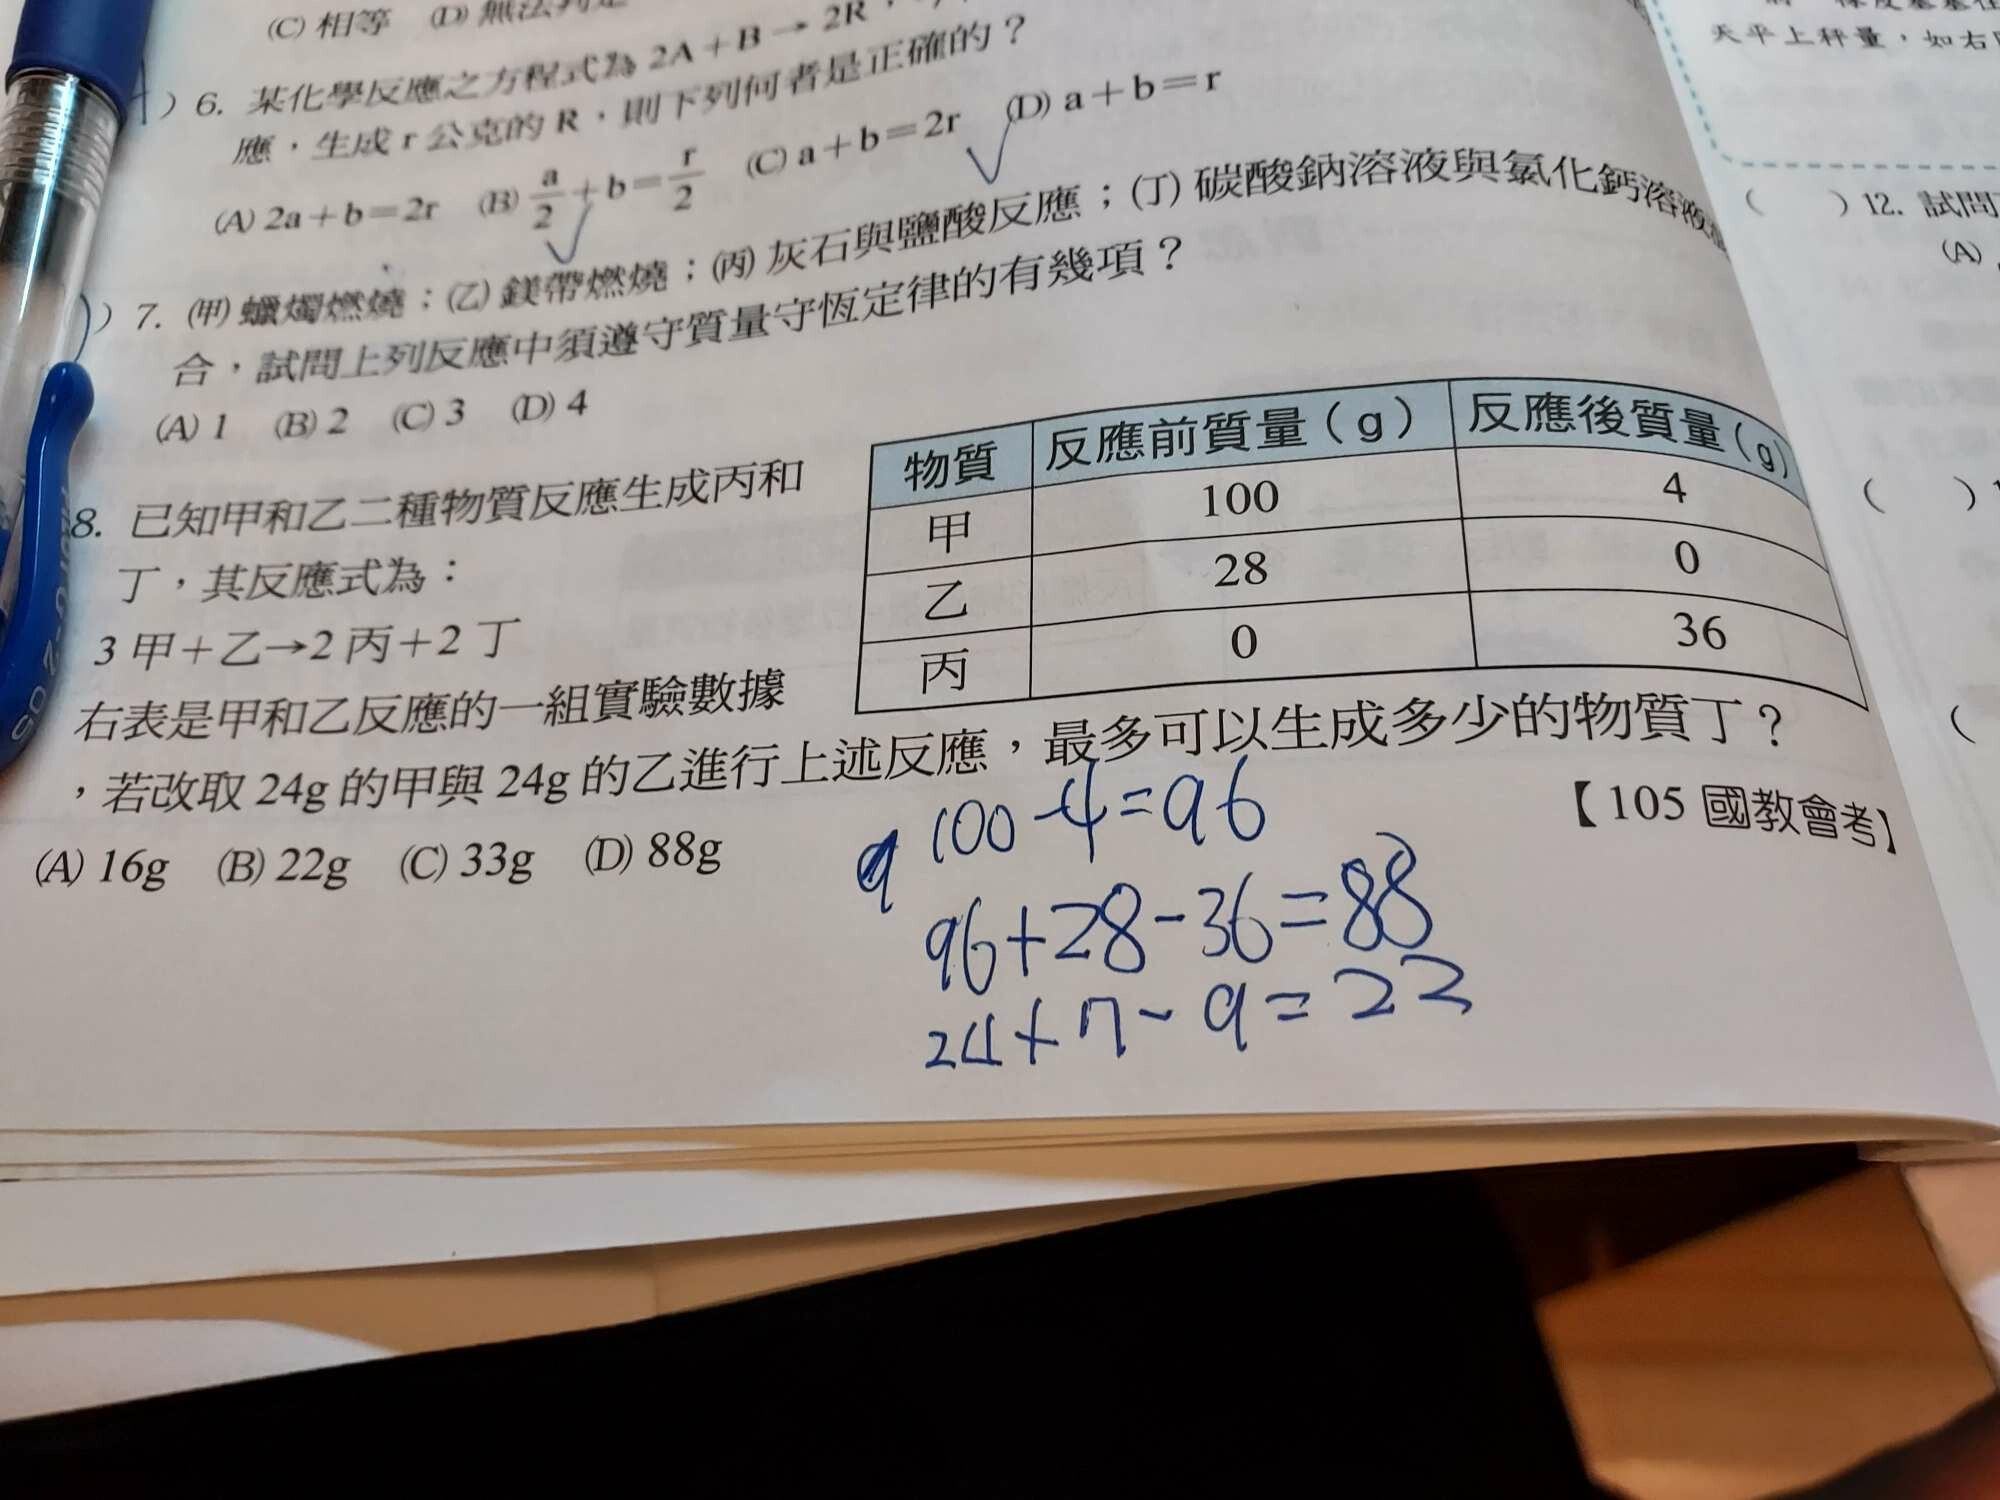 (C) 相等 (D)
) 6. 某化學反應之方程式為 2A＋B → 2R，
應，生成 r 公克的 R，則下列何者是正確的？
(A) 2a＋b＝2r (B) a/2＋b＝r/2 (C) a＋b＝2r (D) a＋b＝r
) 7. (甲) 蠟燭燃燒；(乙) 鎂帶燃燒；(丙) 灰石與鹽酸反應；(丁) 碳酸鈉溶液與氯化鈣溶液
合，試問上列反應中須遵守質量守恆定律的有幾項？
(A) 1 (B) 2 (C) 3 (D) 4
8. 已知甲和乙二種物質反應生成丙和
丁，其反應式為：
3 甲＋乙→2 丙＋2 丁
右表是甲和乙反應的一組實驗數據
，若改取 24g 的甲與 24g 的乙進行上述反應，最多可以生成多少的物質丁？
【105 國教會考】
(A) 16g (B) 22g (C) 33g (D) 88g
物質 反應前質量（g） 反應後質量（g）
甲 100 4
乙 28 0
丙 0 36
100－4＝96
96＋28－36＝88
24＋7－9＝22
天平上秤量，如右
( ) 12. 試問
(A)
( )
(